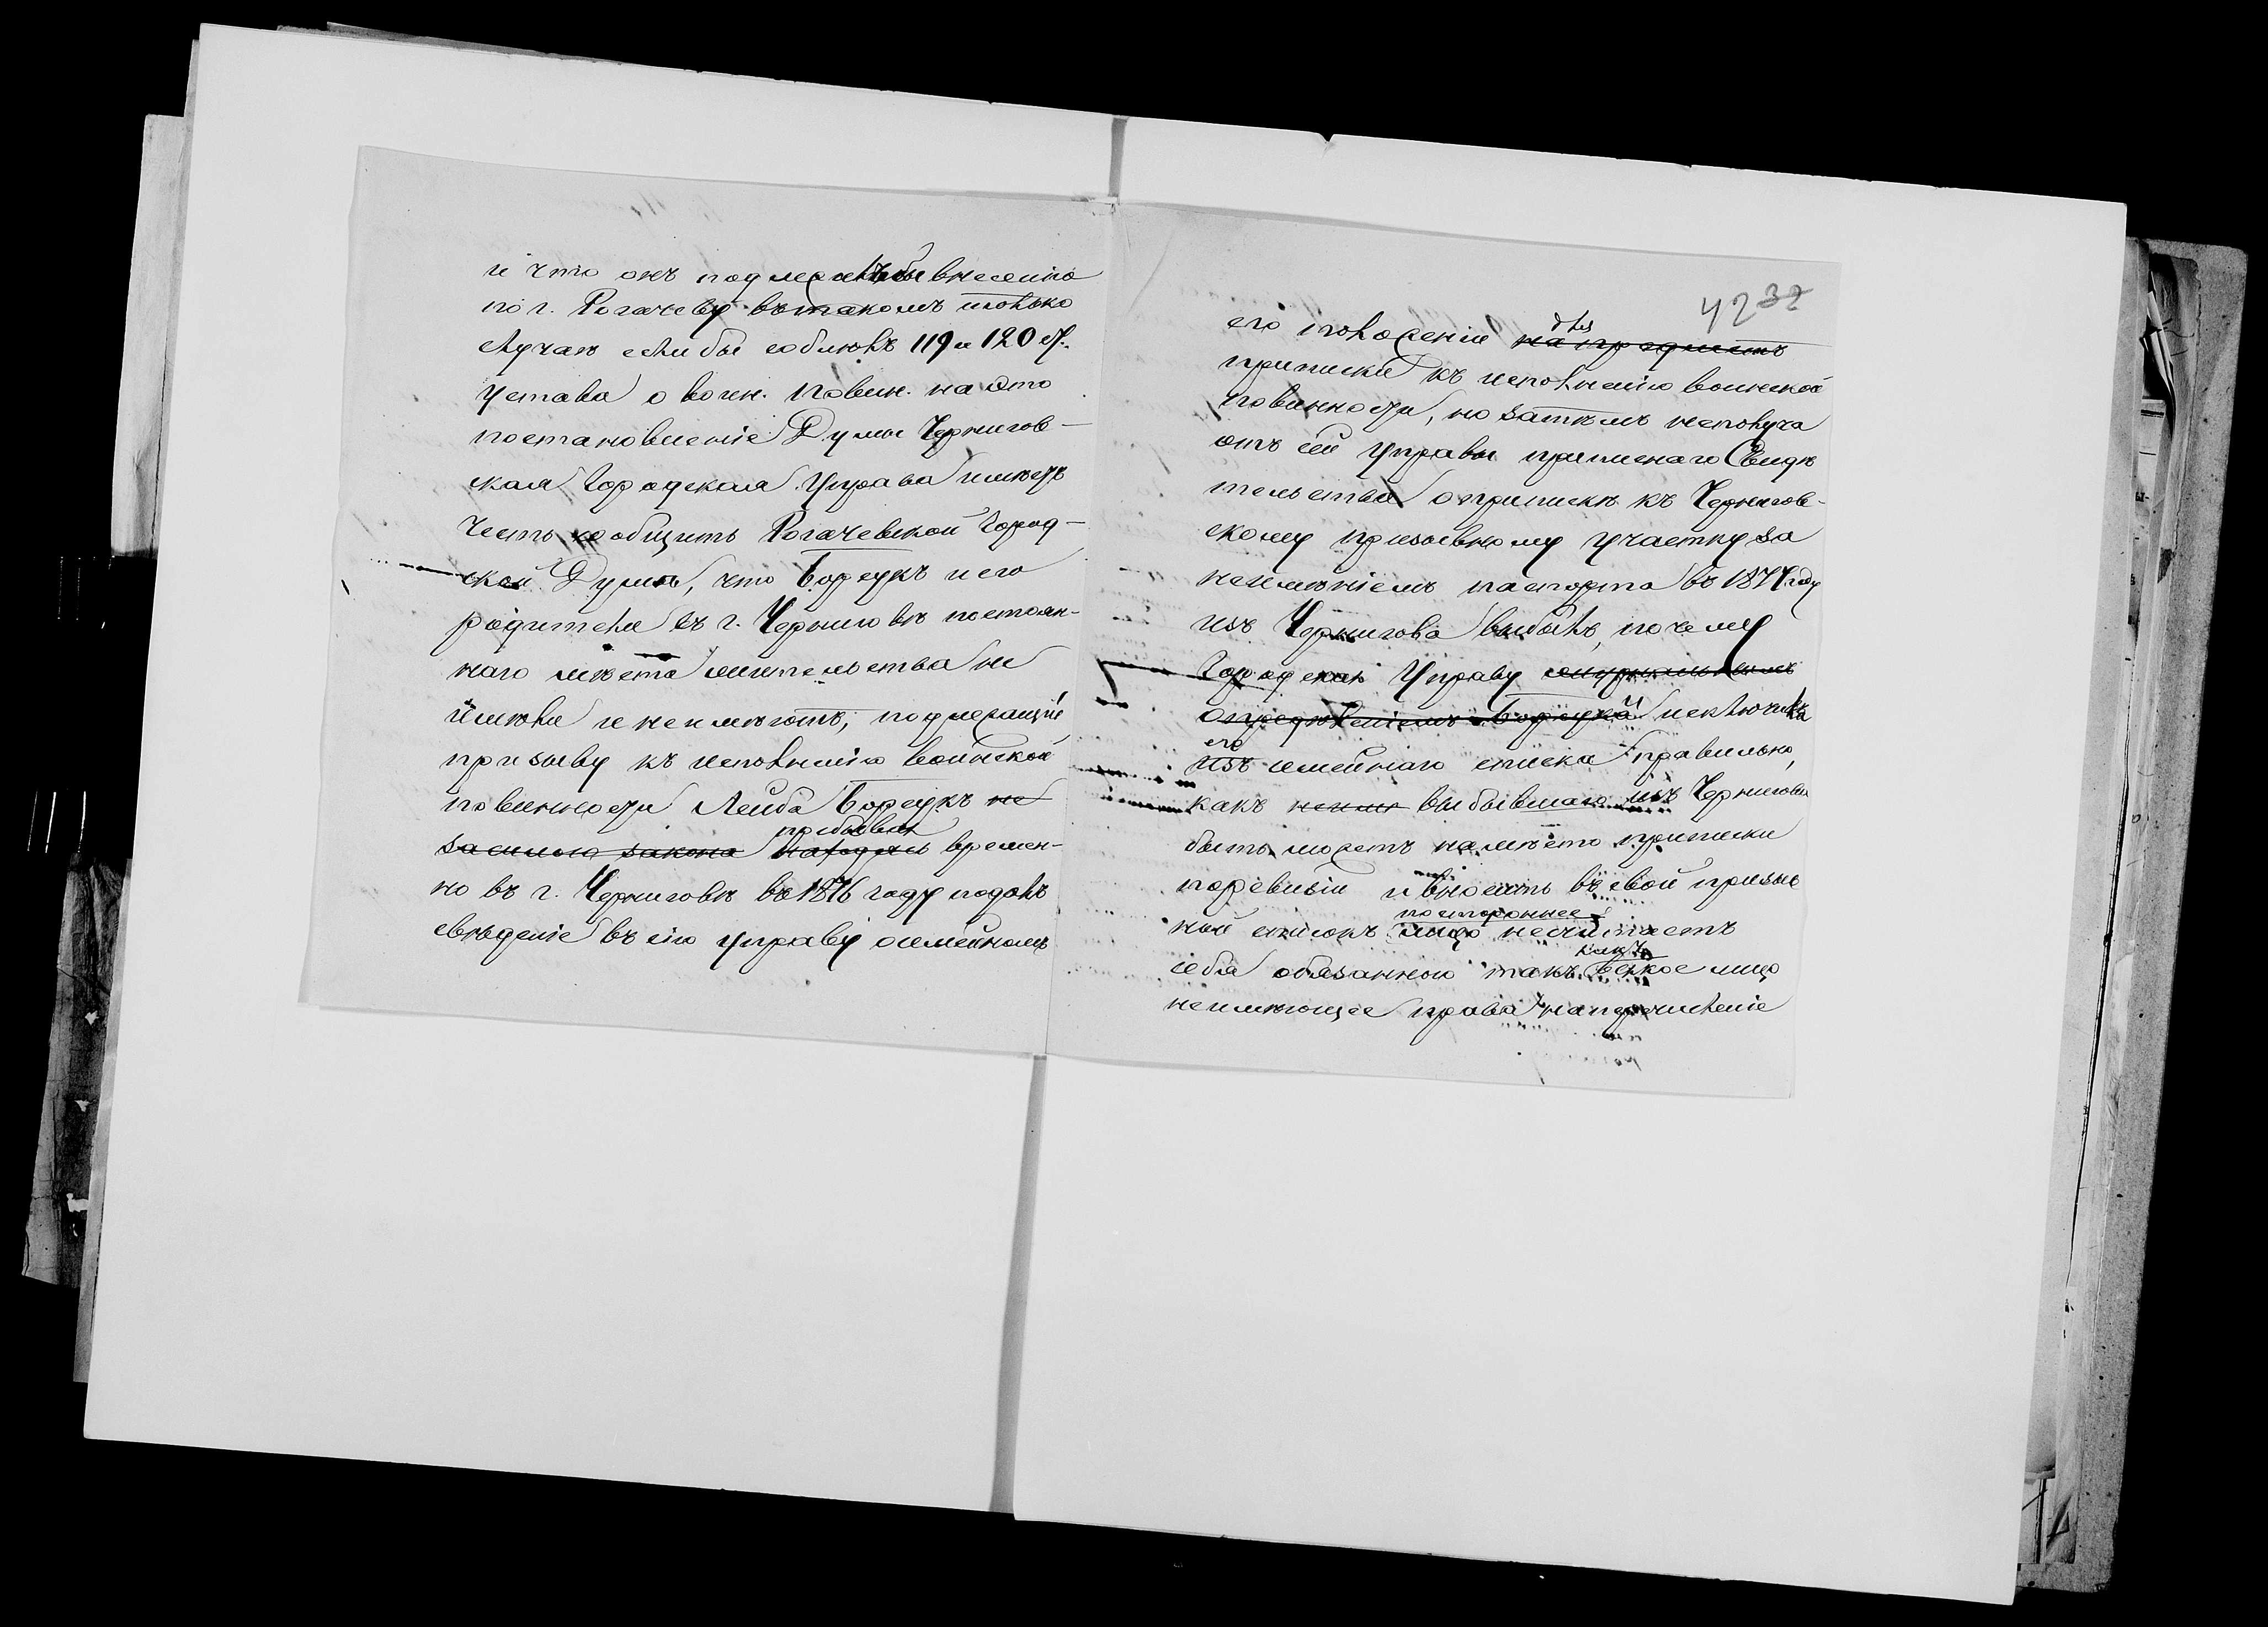 и что онъ подлежалъ бы внесенію
по г. Рогачеву въ такомъ только
случаѣ если бы соблюлъ 119 и 120 ст.
устава о воин. повин. на это
постановленіе Думы Чернигов-
ская Городская Управа имѣетъ
честь сообщить Рогачевской Город-
ской Думѣ, что Борсукъ и его
родители въ г. Черниговѣ постоян-
наго мѣста жительства не
имѣли и неимѣютъ, подлежащій
призыву къ исполненію воинской
повинности Лейба Борсукъ не
пребывая
засилою закона находясь времен-
но въ г. Черниговѣ въ 1876 году подалъ
свѣденіе въ сію управу о семейномъ
42 32
его положеніи для
на предметъ
приписки къ исполненію воинской
повинности, но затѣмъ неполуча
отъ сей Управы приписнаго Свидѣ
тельства о припискѣ къ Чернигов-
скому призывному участку за
неимѣніемъ паспорта въ 1877 году
изъ Чернигова выбылъ, почему
Городская Управу журнальнымъ
опредѣленіемъ Борсука исключила
его
изъ семейнаго списка правильно,
какъ неимѣ выбывшаго изъ Чернигова
быть можетъ на мѣсто приписки
поревизіи и вносить въ свой призыв
ной списокъ постороннее
лицо несчитаетъ
себя обязанною такъ какъ
всякое лицо
неимѣющее права на перечисленіе